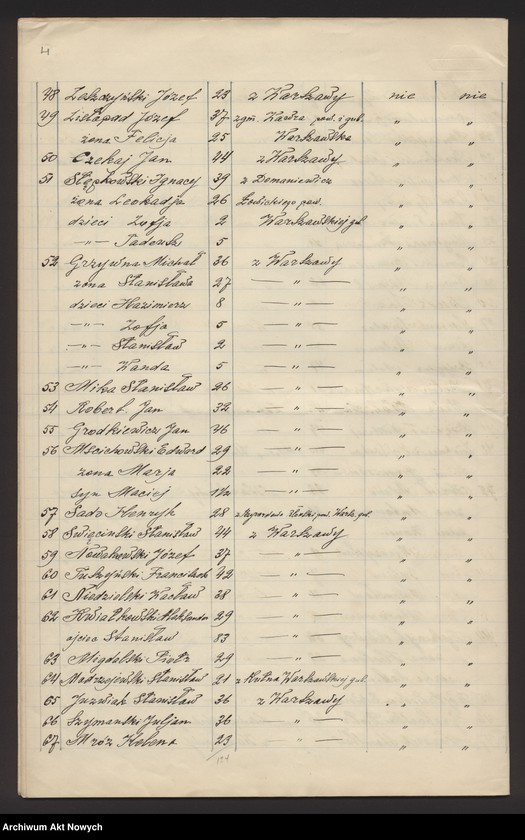 4
48 Leszczyński Józef 23 z Warszawy nie nie
49 Listopad Józef 37 zgm. Wawra pow. i gub. " "
żona Felicja 25 Warszawska " "
50 Czekaj Jan 44 z Warszawy " "
51 Stępkowski Ignacy 39 z Domaniewicz " "
żona Leokadja 26 Łowickiego pow. " "
dzieci Zofja 2 Warszawskiej gub. " "
—"— Tadeusz 5 " "
52 Grzywna Michał 36 z Warszawy " "
żona Stanisława 27 —"— " "
dzieci Kazimierz 8 —"— " "
—"— Zofja 5 —"— " "
—"— Stanisław 2 —"— " "
—"— Wanda 5 —"— " "
53 Mika Stanisław 26 —"— " "
54 Robert Jan 32 —"— " "
55 Grodkiewicz Jan 46 —"— " "
56 Mścichowski Edward 29 —"— " "
żona Marja 22 —"— " "
syn Maciej 1½ —"— " "
57 Sado Henryk 28 gub. " "
58 Święcinski Stanisław 44 z Warszawy " "
59 Nowakowski Józef 37 —"— " "
60 Tuszyński Franciszek 42 —"— " "
61 Niedzielski Wacław 38 —"— " "
62 Kwiatkowski Aleksander 29 —"— " "
ojciec Stanisław 83 —"— " "
63 Migdalski Piotr 29 —"— " "
64 Modrzejewski Stanisław 21 z Kutna Warszawskiej gub. " "
65 Juzwiak Stanisław 36 z Warszawy " "
66 Szymanski Juljan 36 —"— " "
67 Mróz Helena 23 —"— " "
Archiwum Akt Nowych